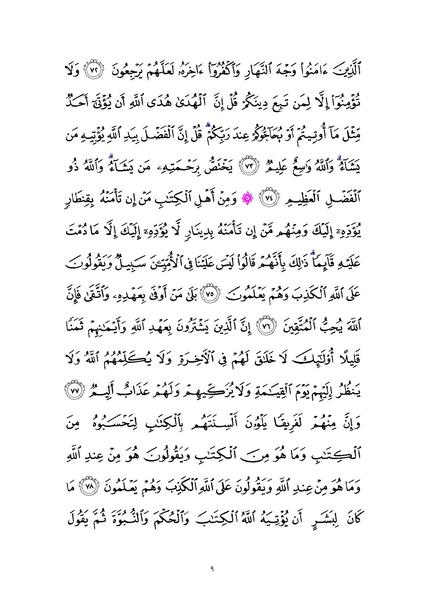 ٱلَّذِينَ ءَامَنُوا۟ وَجْهَ ٱلنَّهَارِ وَٱكْفُرُوٓا۟ ءَاخِرَهُۥ لَعَلَّهُمْ يَرْجِعُونَ ﴿٧٢﴾ وَلَا
تُؤْمِنُوٓا۟ إِلَّا لِمَن تَبِعَ دِينَكُمْ قُلْ إِنَّ ٱلْهُدَىٰ هُدَى ٱللَّهِ أَن يُؤْتَىٰٓ أَحَدٌ
مِّثْلَ مَآ أُوتِيتُمْ أَوْ يُحَآجُّوكُمْ عِندَ رَبِّكُمْ ۗ قُلْ إِنَّ ٱلْفَضْلَ بِيَدِ ٱللَّهِ يُؤْتِيهِ مَن
يَشَآءُ ۗ وَٱللَّهُ وَٰسِعٌ عَلِيمٌ ﴿٧٣﴾ يَخْتَصُّ بِرَحْمَتِهِۦ مَن يَشَآءُ ۗ وَٱللَّهُ ذُو
ٱلْفَضْلِ ٱلْعَظِيمِ ﴿٧٤﴾ ۞ وَمِنْ أَهْلِ ٱلْكِتَٰبِ مَنْ إِن تَأْمَنْهُ بِقِنطَارٍ
يُؤَدِّهِۦٓ إِلَيْكَ وَمِنْهُم مَّنْ إِن تَأْمَنْهُ بِدِينَارٍ لَّا يُؤَدِّهِۦٓ إِلَيْكَ إِلَّا مَا دُمْتَ
عَلَيْهِ قَآئِمًا ۗ ذَٰلِكَ بِأَنَّهُمْ قَالُوا۟ لَيْسَ عَلَيْنَا فِى ٱلْأُمِّيِّـۧنَ سَبِيلٌ وَيَقُولُونَ
عَلَى ٱللَّهِ ٱلْكَذِبَ وَهُمْ يَعْلَمُونَ ﴿٧٥﴾ بَلَىٰ مَنْ أَوْفَىٰ بِعَهْدِهِۦ وَٱتَّقَىٰ فَإِنَّ
ٱللَّهَ يُحِبُّ ٱلْمُتَّقِينَ ﴿٧٦﴾ إِنَّ ٱلَّذِينَ يَشْتَرُونَ بِعَهْدِ ٱللَّهِ وَأَيْمَٰنِهِمْ ثَمَنًا
قَلِيلًا أُو۟لَٰٓئِكَ لَا خَلَٰقَ لَهُمْ فِى ٱلْءَاخِرَةِ وَلَا يُكَلِّمُهُمُ ٱللَّهُ وَلَا
يَنظُرُ إِلَيْهِمْ يَوْمَ ٱلْقِيَٰمَةِ وَلَا يُزَكِّيهِمْ وَلَهُمْ عَذَابٌ أَلِيمٌ ﴿٧٧﴾
وَإِنَّ مِنْهُمْ لَفَرِيقًا يَلْوُۥنَ أَلْسِنَتَهُم بِٱلْكِتَٰبِ لِتَحْسَبُوهُ مِنَ
ٱلْكِتَٰبِ وَمَا هُوَ مِنَ ٱلْكِتَٰبِ وَيَقُولُونَ هُوَ مِنْ عِندِ ٱللَّهِ
وَمَا هُوَ مِنْ عِندِ ٱللَّهِ وَيَقُولُونَ عَلَى ٱللَّهِ ٱلْكَذِبَ وَهُمْ يَعْلَمُونَ ﴿٧٨﴾ مَا
كَانَ لِبَشَرٍ أَن يُؤْتِيَهُ ٱللَّهُ ٱلْكِتَٰبَ وَٱلْحُكْمَ وَٱلنُّبُوَّةَ ثُمَّ يَقُولَ
٩